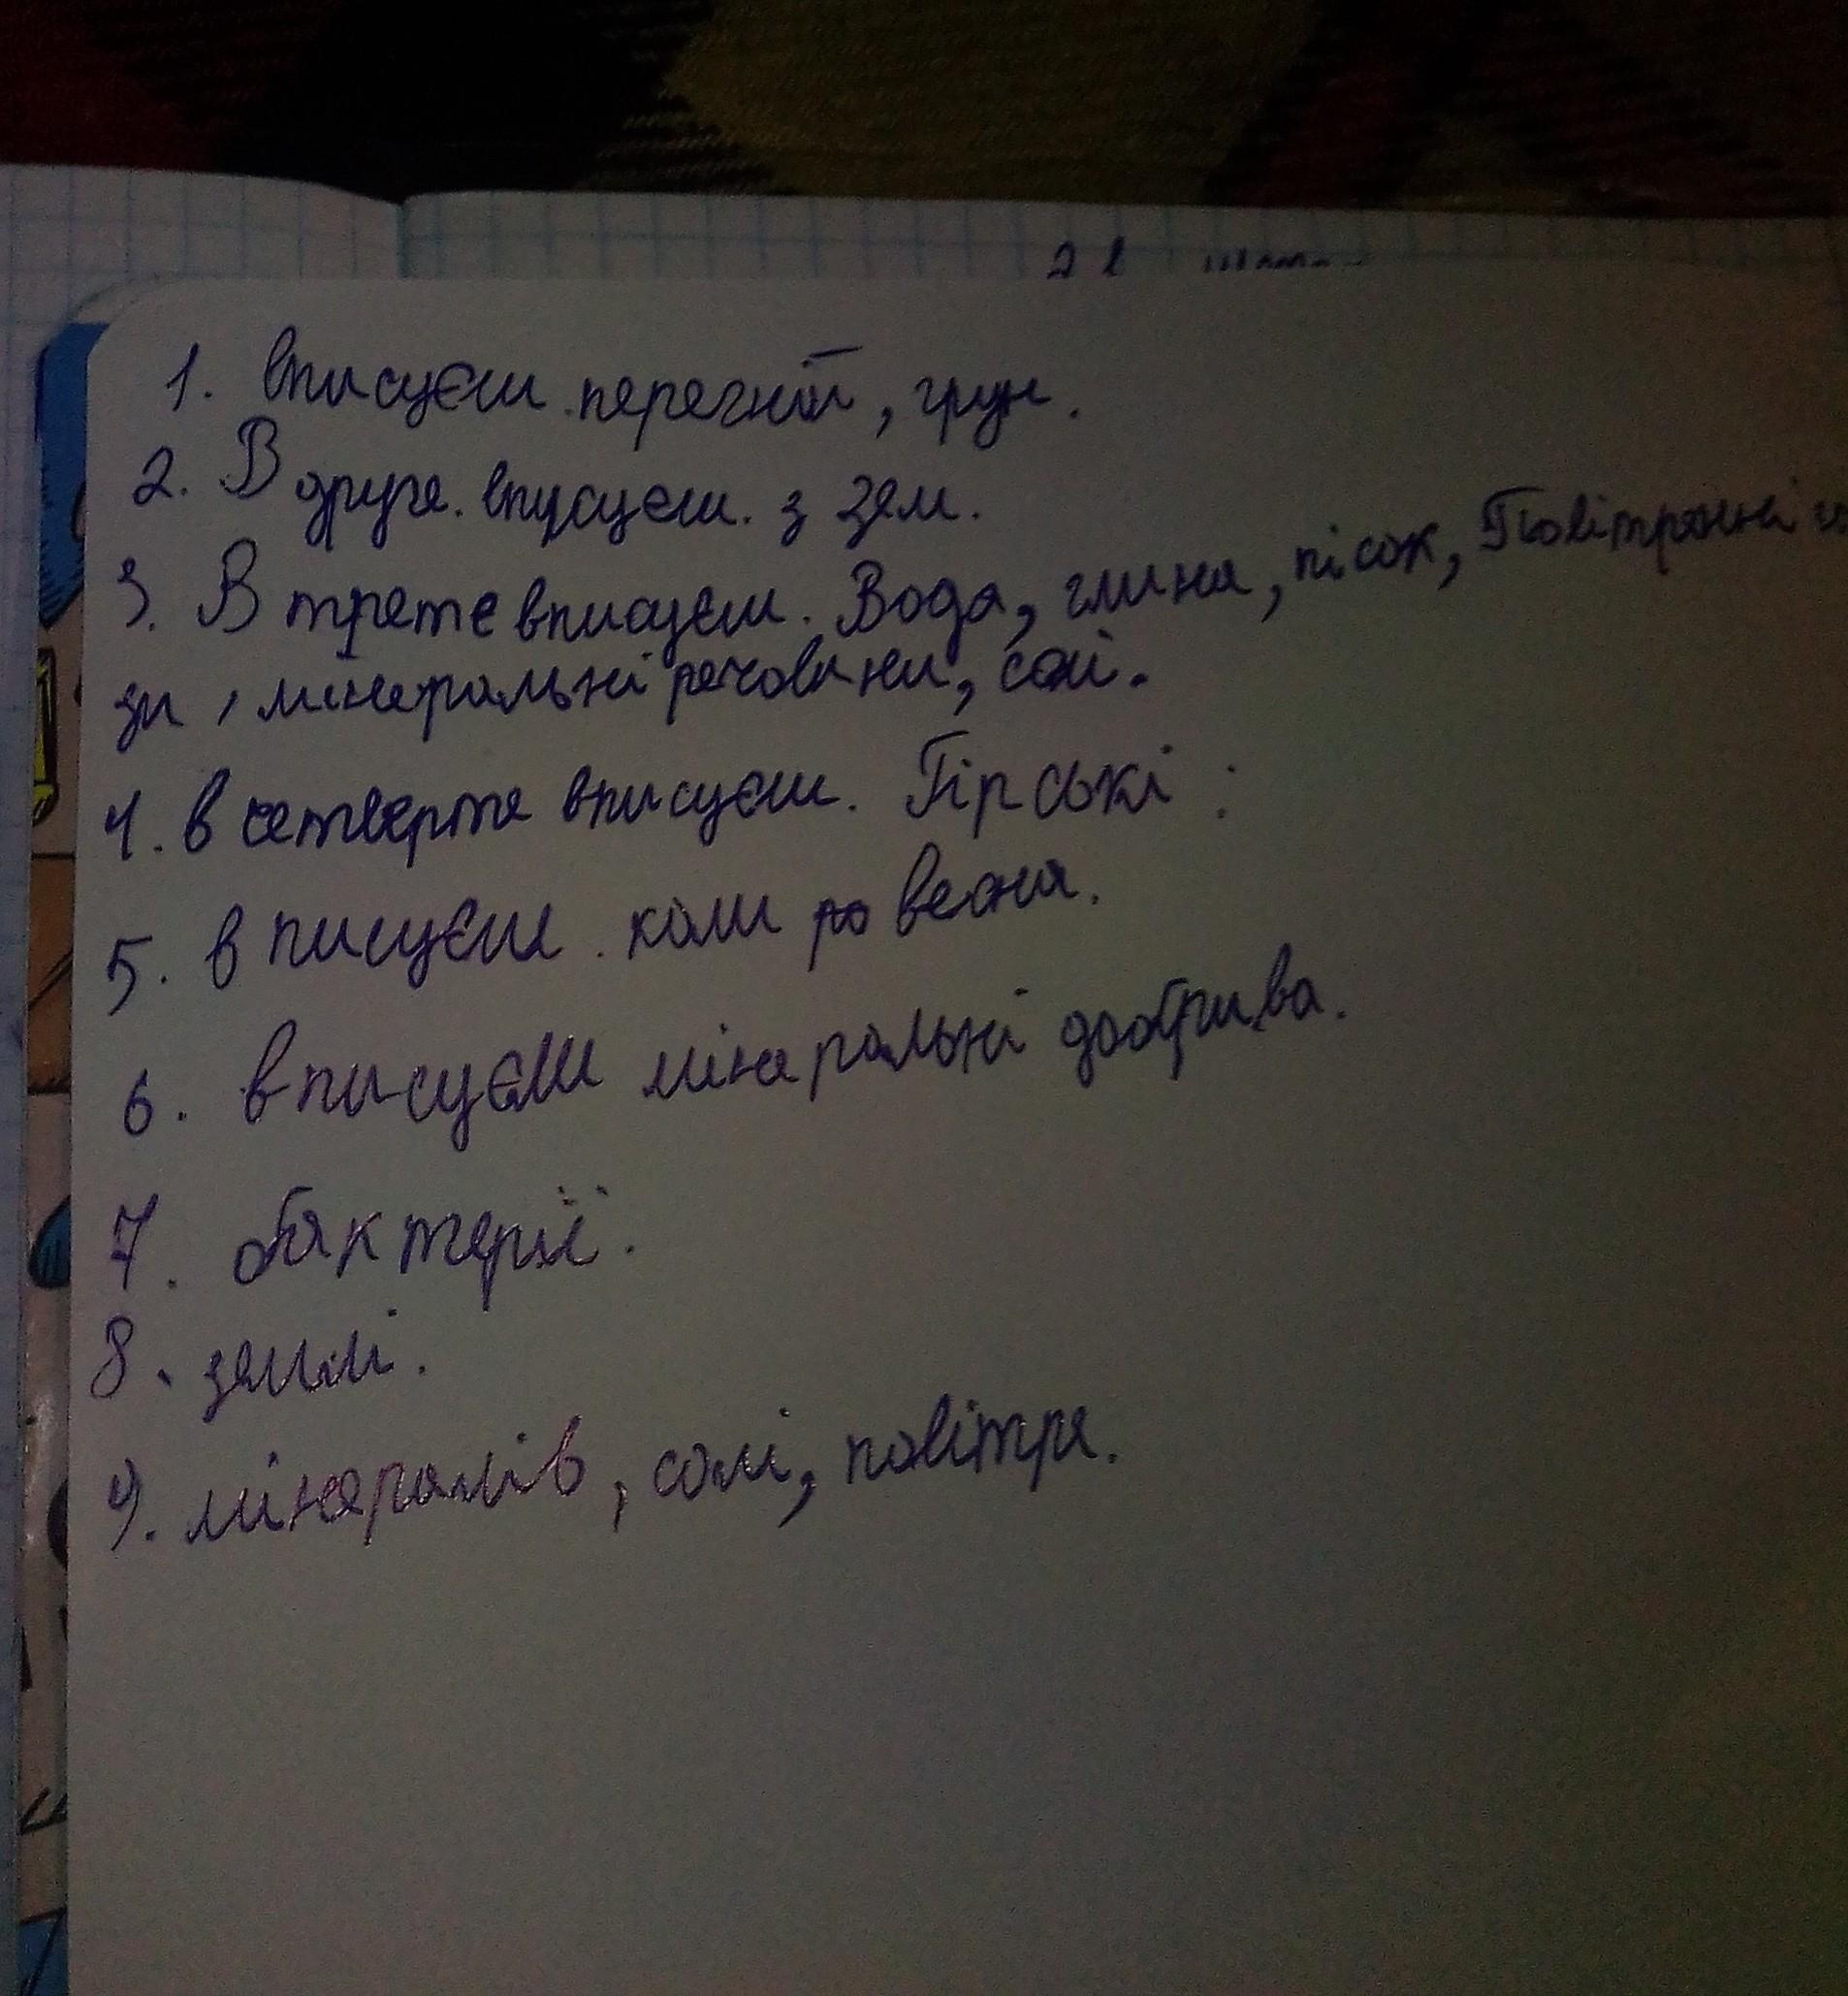 1. вписуєш перегній, грун.
2. В друге. впусуєш. з зем.
3. В трете вписуєш. Вода, глина, пісок, Повітрянні
зи, мінеральні речовини, солі.
4. в четверте вписуєш. Гірські :
5. вписуєш. коли весна.
6. вписуєш мінеральні добрива.
7. бактерії.
8. землі.
9. мінералів, солі, повітря.